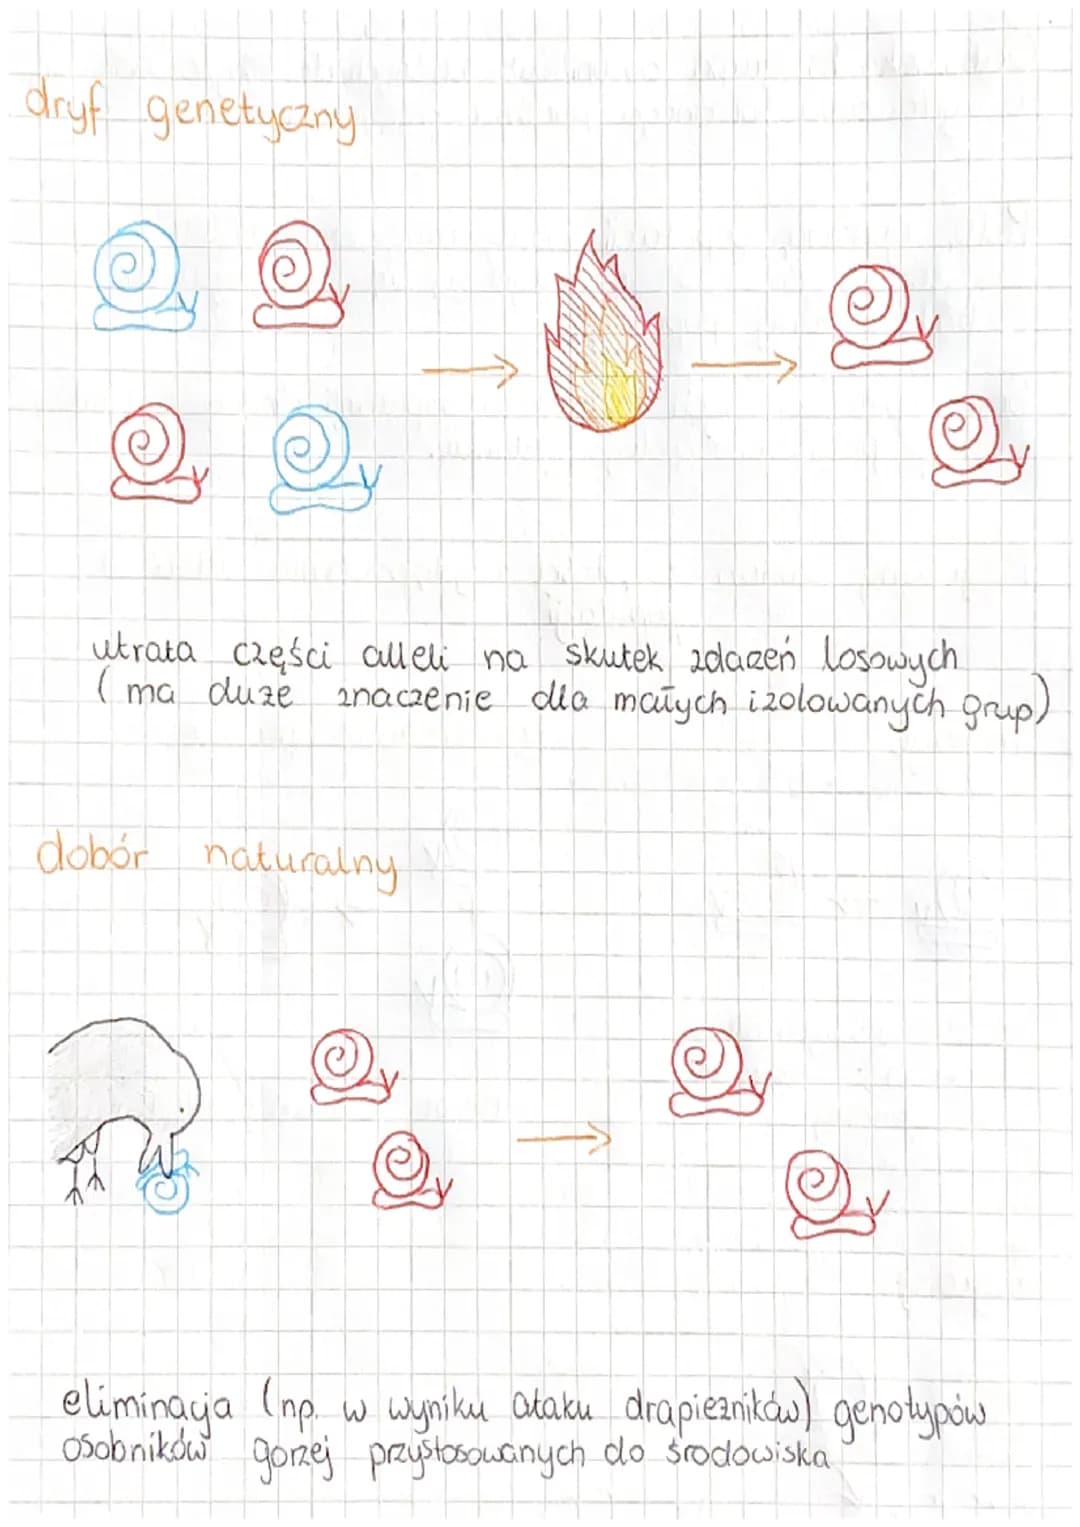 dryf genetyczny
utrata części alleli na skutek zdazeń losowych
(ma duże znaczenie dla małych izolowanych grup)
dobór naturalny
eliminacja (np. w wyniku ataku drapieżników) genotypów
osobników gorzej przystosowanych do środowiska